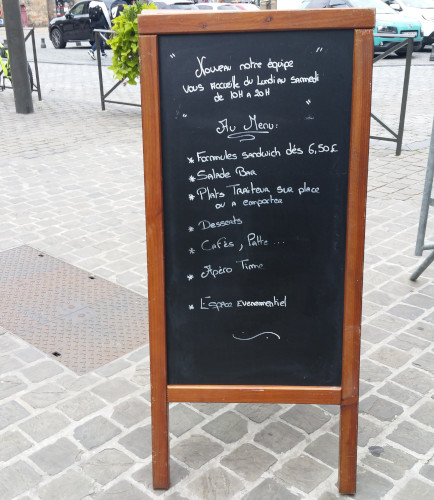 " Nouveau notre équipe "
vous accueille du Lundi au samedi
" de 10H à 20H "
Au Menu:
* Formules sandwich dés 6,50€
* Salade Bar
* Plats Traiteur sur place
ou a emporter
* Desserts
* Cafés, Patte ...
* Apéro Time
* Espace Evenementiel